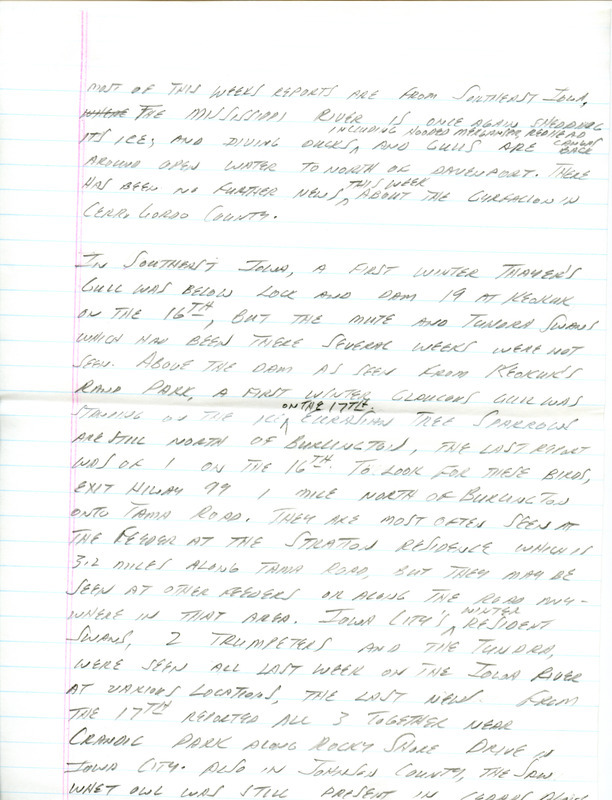 MOST OF THIS WEEKS REPORTS ARE FROM SOUTHEST IOWA,
WHERE THE MISSISSIPPI RIVER IS ONCE AGAIN SHEDDING
INCLUDING HOODED MERGANSER REDHEAD CANVAS BACK
ITS ICE; AND DIVING DUCKS, AND GULLS ARE
AROUND OPEN WATER TO NORTH OF DAVENPORT. THERE
THIS WEEK
HAS BEEN NO FURTHER NEWS ABOUT THE GYRFALCON IN
CERRO GORDO COUNTY.
IN SOUTHEST IOWA, A FIRST WINTER THAYER'S
GULL WAS BELOW LOCK AND DAM 19 AT KEOKUK
ON THE 16TH, BUT THE MUTE AND TUNDRA SWANS
WHICH HAD BEEN THERE SEVERAL WEEKS WERE NOT
SEEN. ABOVE THE DAM AS SEEN FROM KEOKUK'S
RAND PARK, A FIRST WINTER GLAUCOUS GULL WAS
ON THE 17TH
STANDING ON THE ICE. EURASIAN TREE SPARROWS
ARE STILL NORTH OF BURLINGTON, THE LAST REPORT
WAS OF 1 ON THE 16TH. TO LOOK FOR THESE BIRDS,
EXIT HIWAY 99 1 MILE NORTH OF BURLINGTON
ONTO TAMA ROAD. THEY ARE MOST OFTEN SEEN AT
THE FEEDER AT THE STRATTON RESIDENCE WHICH IS
3.2 MILES ALONG TAMA ROAD, BUT THEY MAY BE
SEEN AT OTHER FEEDERS OR ALONG THE ROAD ANY-
WINTER
WHERE IN THAT AREA. IOWA CITY'S RESIDENT
SWANS, 2 TRUMPETERS AND THE TUNDRA,
WERE SEEN ALL LAST WEEK ON THE IOWA RIVER
AT VARIOUS LOCATIONS, THE LAST NEWS FROM
THE 17TH REPORTED ALL 3 TOGETHER NEAR
CRANDIC PARK ALONG ROCKY SHORE DRIVE IN
IOWA CITY. ALSO IN JOHNSON COUNTY, THE SAW
WHET OWL WAS STILL PRESENT IN